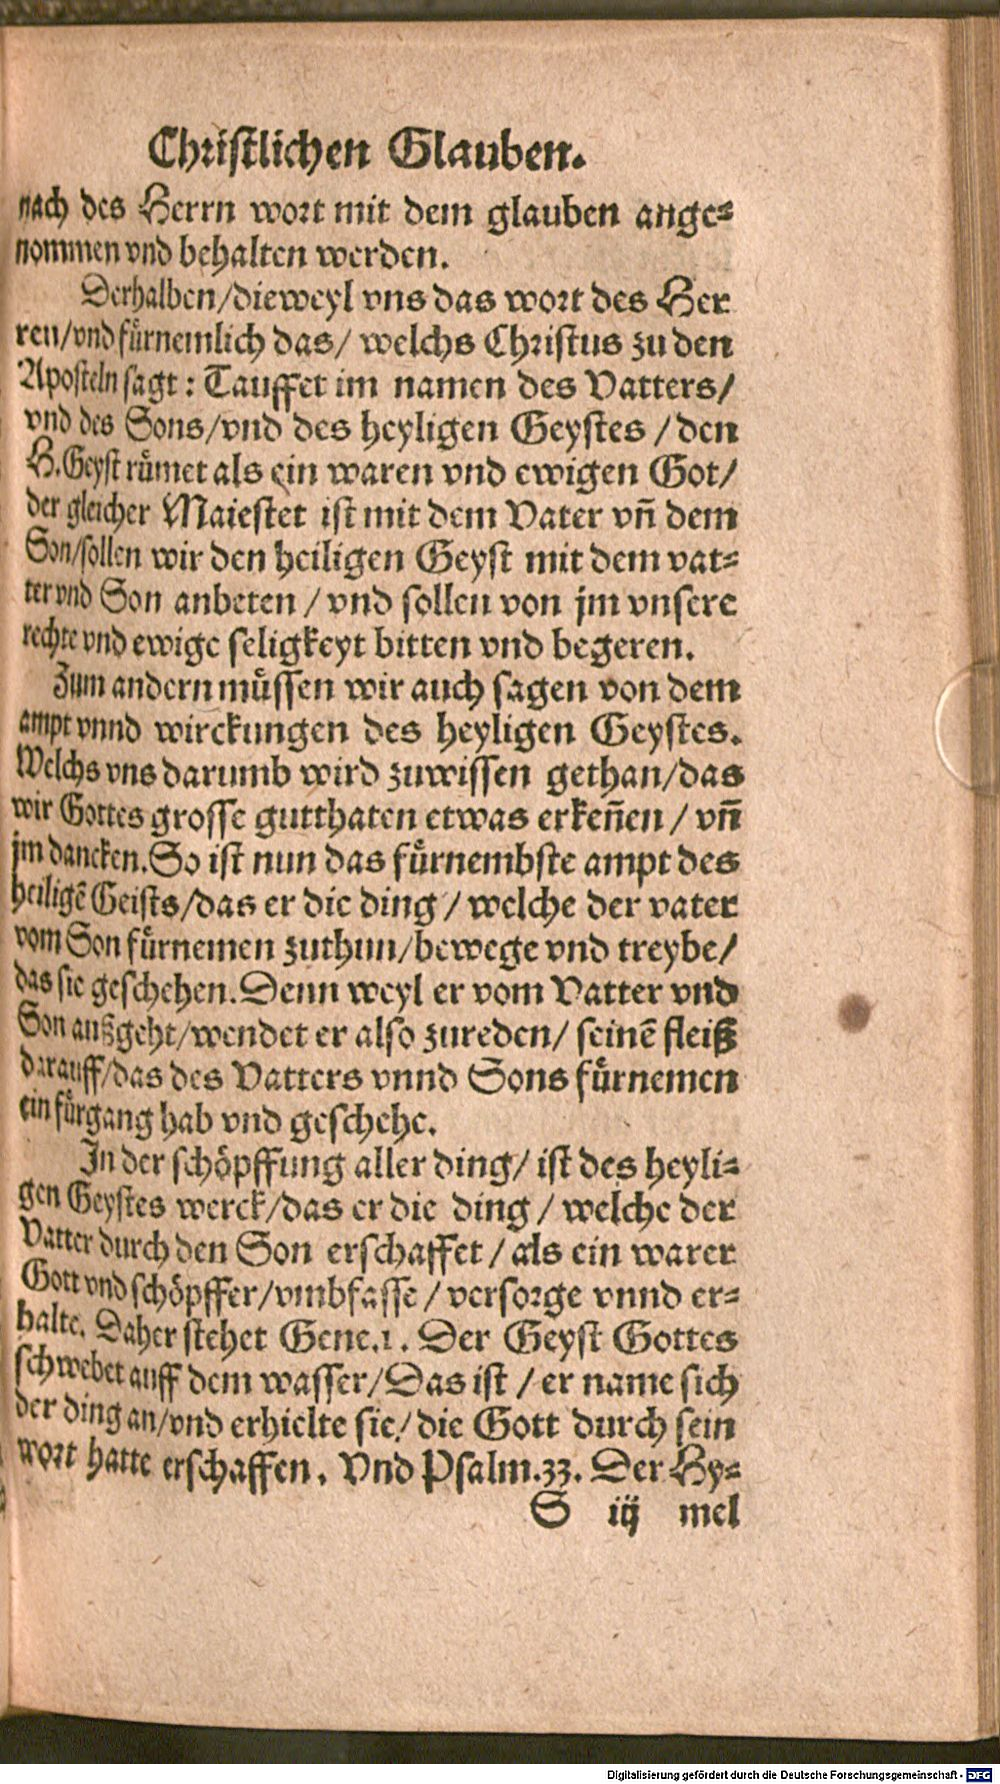 Christlichen Glauben.
nach des Herrn wort mit dem glauben ange⸗
nommen vnd behalten werden.
Derhalben/dieweyl vns das wort des Her
ren/vnd fürnemlich das/ welchs Christus zu den
Aposteln sagt: Tauffet im namen des Vatters/
vnd des Sons/vnd des heyligen Geystes / den
H. Geyst rümet als ein waren vnd ewigen Got/
der gleicher Maiestet ist mit dem Vater vñ dem
Son/sollen wir den heiligen Geyst mit dem vat⸗
ter vnd Son anbeten / vnd sollen von jm vnsere
rechte vnd ewige seligkeyt bitten vnd begeren.
Zum andern müssen wir auch sagen von dem
ampt vnnd wirckungen des heyligen Geystes.
Welchs vns darumb wird zuwissen gethan/das
wir Gottes grosse gutthaten etwas erkeñen / vñ
jm dancken. So ist nun das fürnembste ampt des
heiligẽ Geists/das er die ding / welche der vater
vom Son fürnemen zuthun/bewege vnd treybe/
das sie geschehen. Denn weyl er vom Vatter vnd
Son außgeht/wendet er also zureden/ seinẽ fleiß
darauff/das des Vatters vnnd Sons fürnemen
ein fürgang hab vnd geschehe.
In der schöpffung aller ding/ ist des heyli⸗
gen Geystes werck/das er die ding / welche der
Vatter durch den Son erschaffet / als ein warer
Gott vnd schöpffer/vmbfasse / versorge vnnd er⸗
halte. Daher stehet Gene.1. Der Geyst Gottes
schwebet auff dem wasser/Das ist / er name sich
der ding an/vnd erhielte sie/ die Gott durch sein
wort hatte erschaffen. Vnd Psalm.33. Der Hy⸗
S iij mel
Digitalisierung gefördert durch die Deutsche Forschungsgemeinschaft - DFG